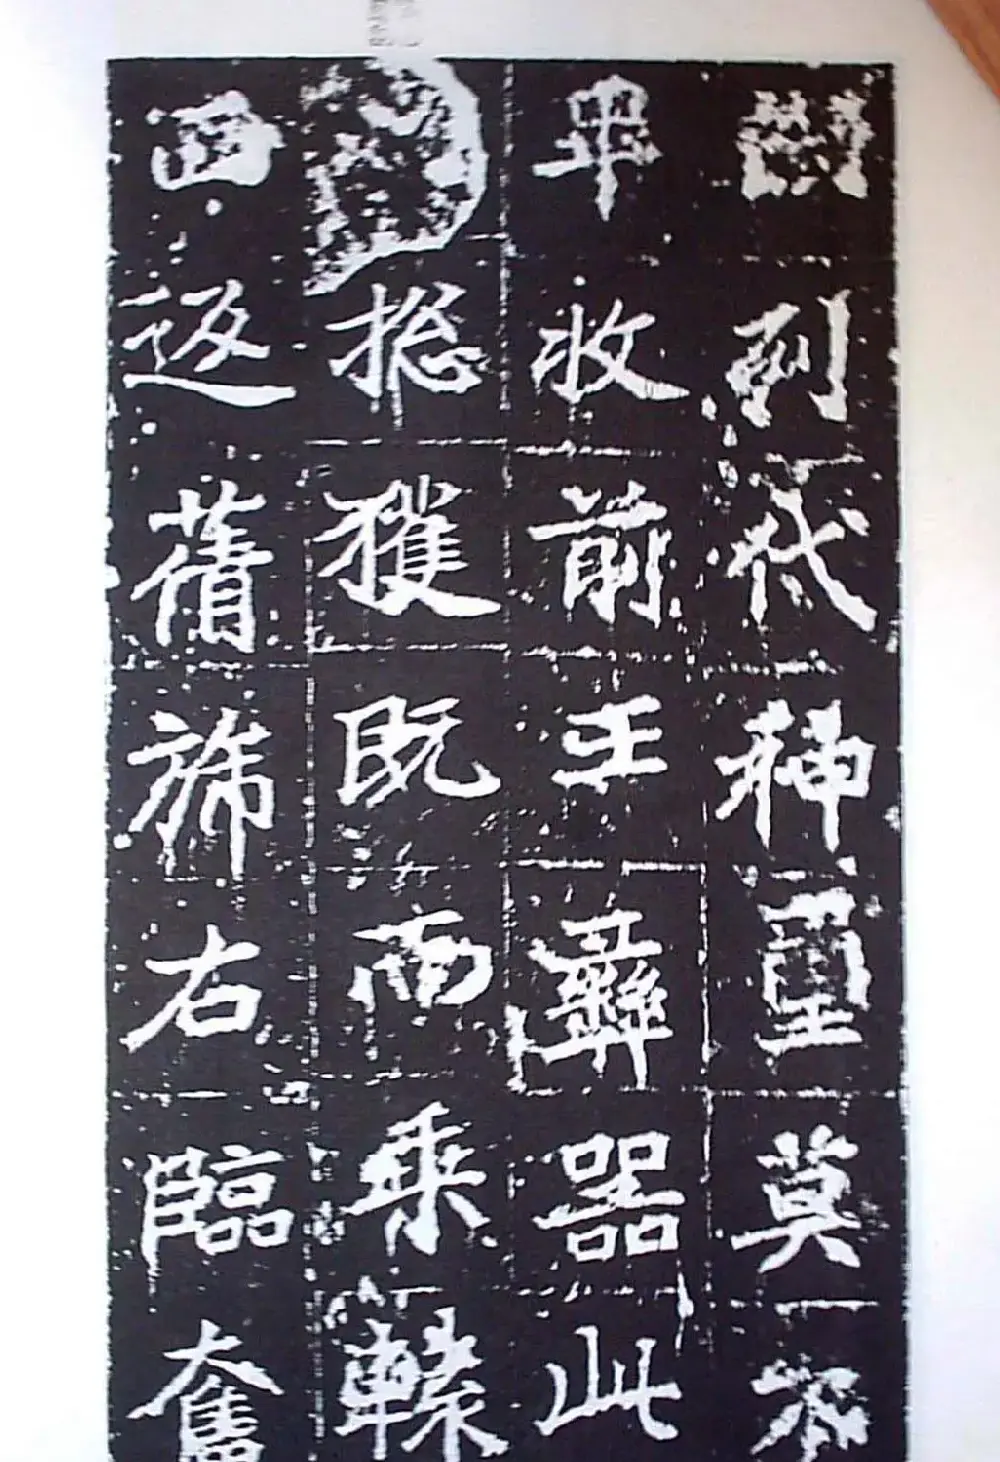 列代神璽莫不
畢收前王彝器此
揔獲既而乘轅
西返蒨旆右臨奮